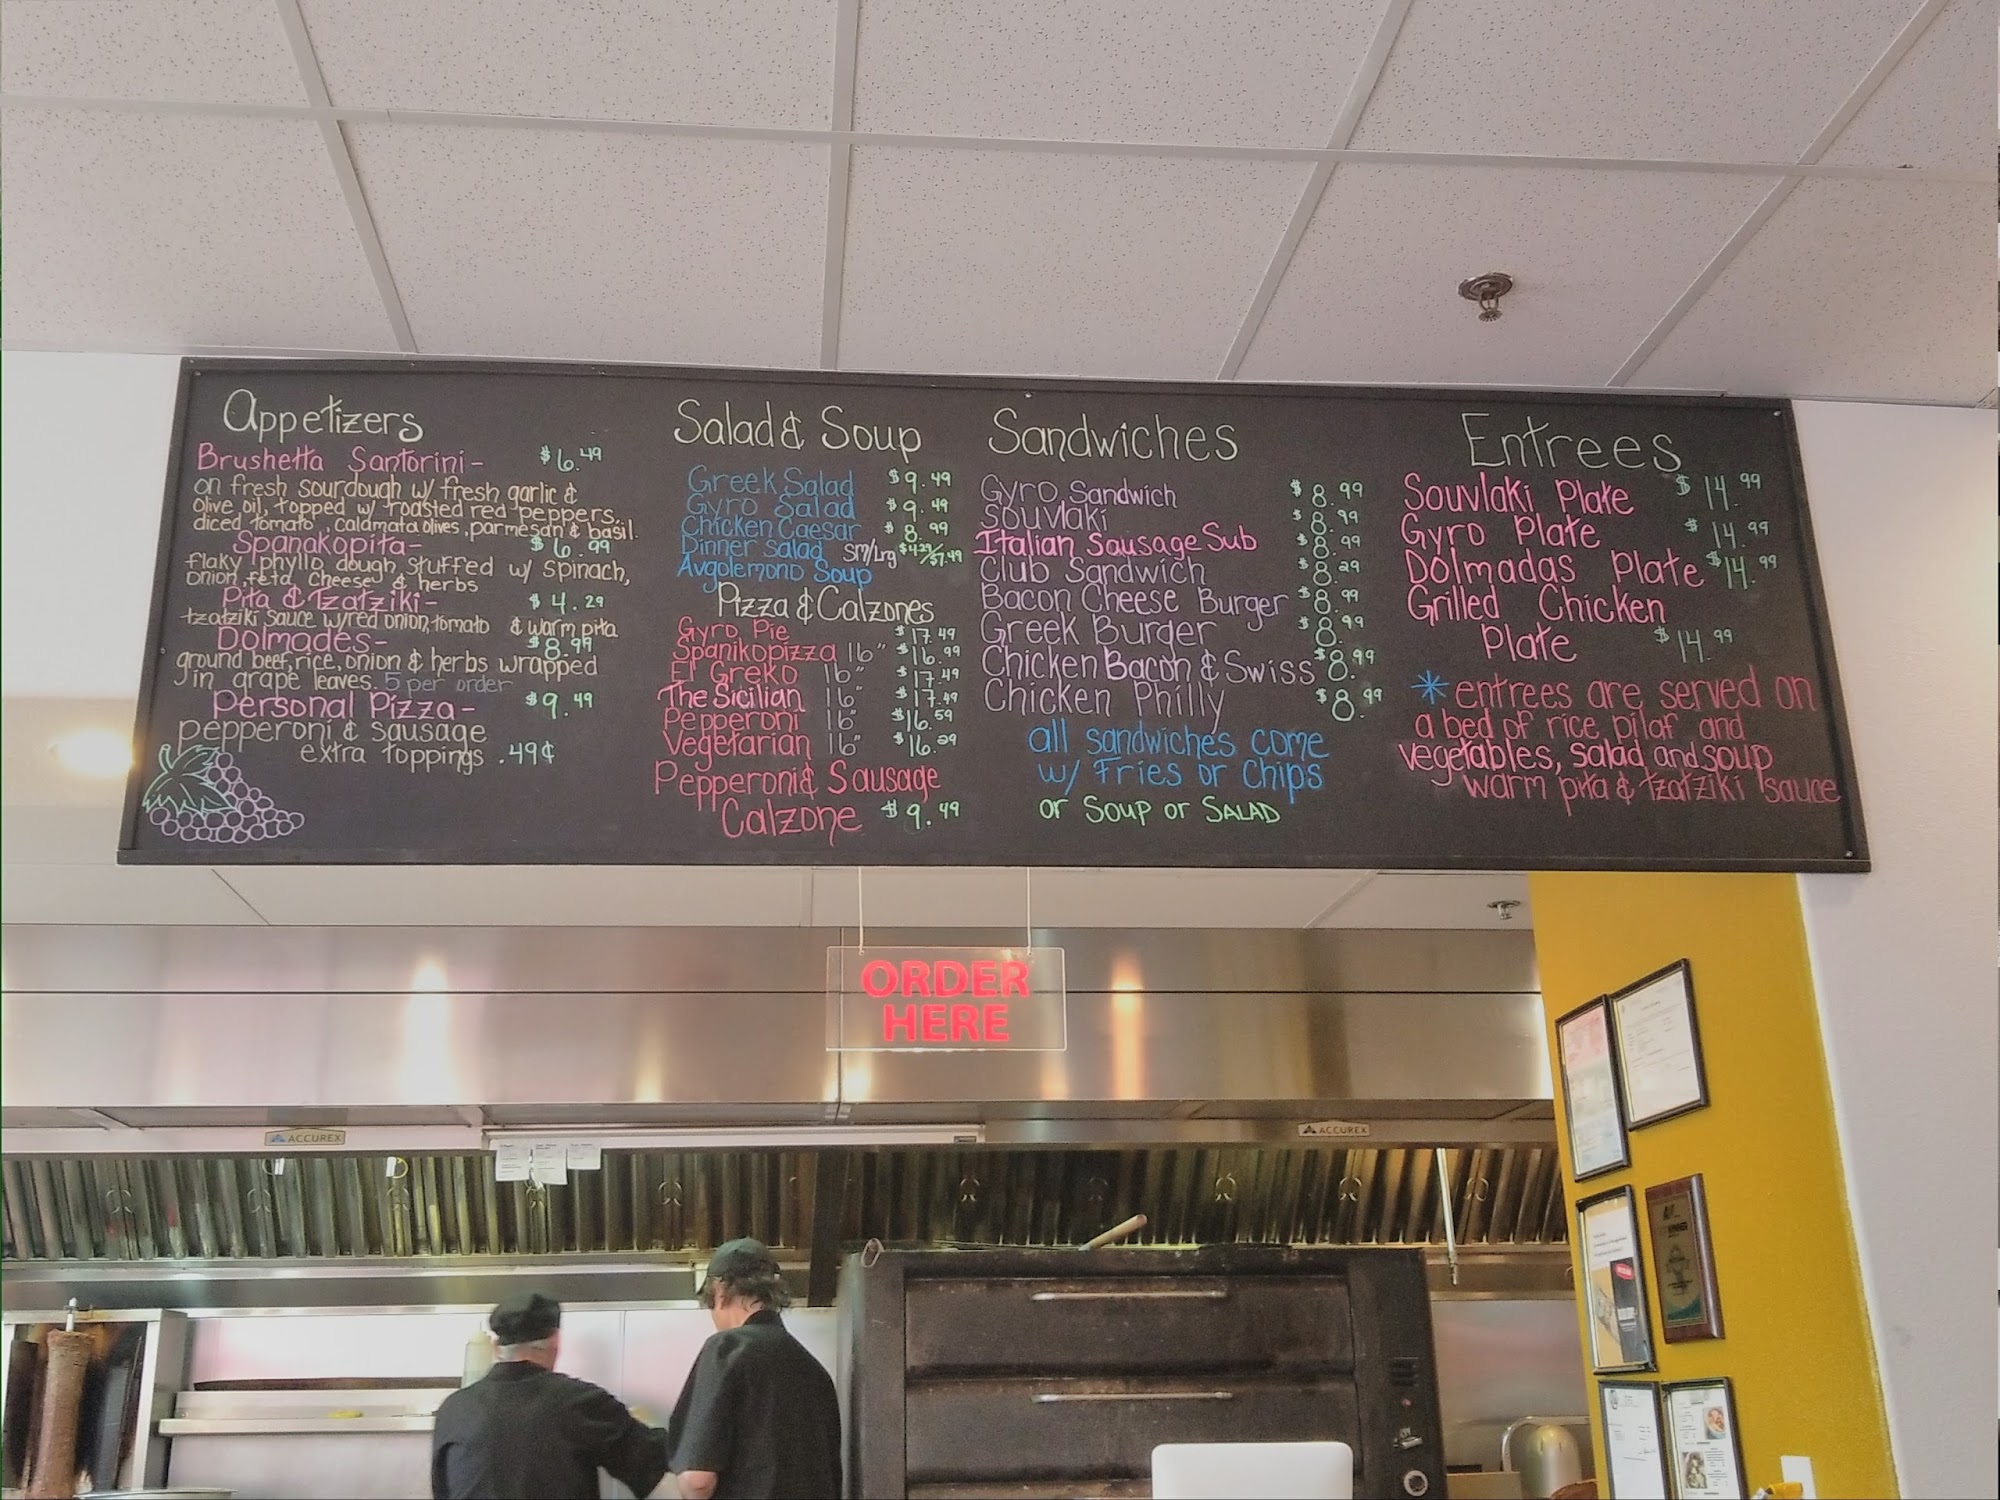 Appetizers
Brushetta Santorini- $6.49
on fresh sourdough w/ fresh garlic &
olive oil, topped w/ roasted red peppers,
diced tomato, calamata olives, parmesan & basil.
Spanakopita- $6.99
flaky phyllo dough stuffed w/ spinach,
onion, feta cheese & herbs
Pita & Tzatziki- $4.29
tzatziki sauce w/red onion, tomato & warm pita
Dolmades- $8.99
ground beef, rice, onion & herbs wrapped
in grape leaves. 5 per order
Personal Pizza- $9.49
pepperoni & sausage
extra toppings .49¢
Salad & Soup
Greek Salad $9.49
Gyro Salad $9.49
Chicken Caesar $8.99
Dinner Salad sm/Lrg $4.29/$7.49
Avgolemono Soup
Pizza & Calzones
Gyro Pie $17.49
Spanikopizza 16" $16.99
El Greko 16" $17.49
The Sicilian 16" $17.49
Pepperoni 16" $16.59
Vegetarian 16" $16.29
Pepperoni & Sausage
Calzone $9.49
Sandwiches
Gyro Sandwich $8.99
Souvlaki $8.99
Italian Sausage Sub $8.99
Club Sandwich $8.29
Bacon Cheese Burger $8.99
Greek Burger $8.99
Chicken Bacon & Swiss $8.99
Chicken Philly $8.99
all sandwiches come
w/ Fries or Chips
or Soup or SALAD
Entrees
Souvlaki Plate $14.99
Gyro Plate $14.99
Dolmadas Plate $14.99
Grilled Chicken
Plate $14.99
* entrees are served on
a bed of rice pilaf and
vegetables, salad and soup
warm pita & tzatziki sauce
ORDER
HERE
ACCUREX
ACCUREX